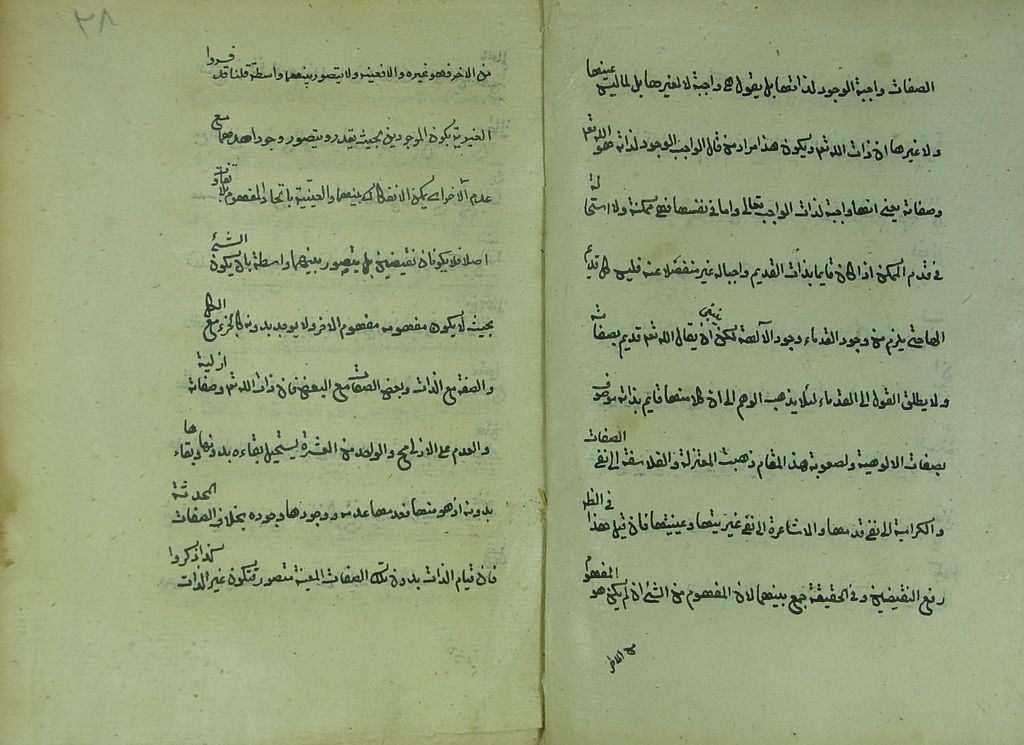 الصفات واجبة الوجود لذاتها بل يقول هى واجبة لا لغيرها بل لما ليس عينها
ولا غيرها اى ذات الله تع ويكون هذا مراد من قال الواجب الوجود لذاته هو الله تع
وصفاته يعنى انها واجبة لذات الواجب تعالى واما فى نفسها فهى ممكنة ولا استحالة
فى قدم الممكن اذا كان قايما بذات القديم واجبا له غير منفصلا عنه فليس كل قديم
الها حتى يلزم من وجود القدماء وجود الآلهة لكن ينبغى ان يقال الله تع قديم بصفاته
ولا يطلق القول الى القدماء لئلا يذهب الوهم الى ان كلا منها قايم بذاته موصوف
بصفات الالوهية ولصعوبة هذا المقام ذهبت المعتزلة والفلاسفة الى نفى الصفات
والكرامية الى نفى قدمها والاشاعرة الى نفى غيريتها وعينيتها فان قيل هذا فى الظ
رفع النقيضين وفى الحقيقة جمع بينهما لان المفهوم من الشئ ان لم يكن هو المفهوم
من الاخر
من الاخر فهو غيره والا فعينه ولا يتصور بينهما واسطة قلنا قد فسروا
الغيرية بكون الموجودين بحيث يقدر ويتصور وجود احدهما مع
عدم الآخر اى يمكن الانفكاك بينهما والعينية باتحاد المفهوم بلا تفاوت
اصلا فلا يكونان نقيضين بل يتصور بينهما واسطة بان يكون الشئ
بحيث لا يكون مفهومه مفهوم الاخر ولا يوجد بدونه كالجزء مع الكل
والصفة مع الذات وبعض الصفات مع البعض فان ذات الله تع وصفاته ازلية
والعدم على الازلى مح والواحد من العشرة يستحيل بقاءه بدونها وبقاءها
بدونه اذ هو منها فعدمها عدمه ووجودها وجوده بخلاف الصفات المحدثة
فان قيام الذات بدون تلك الصفات المعينة متصور فتكون غير الذات كذا ذكروا